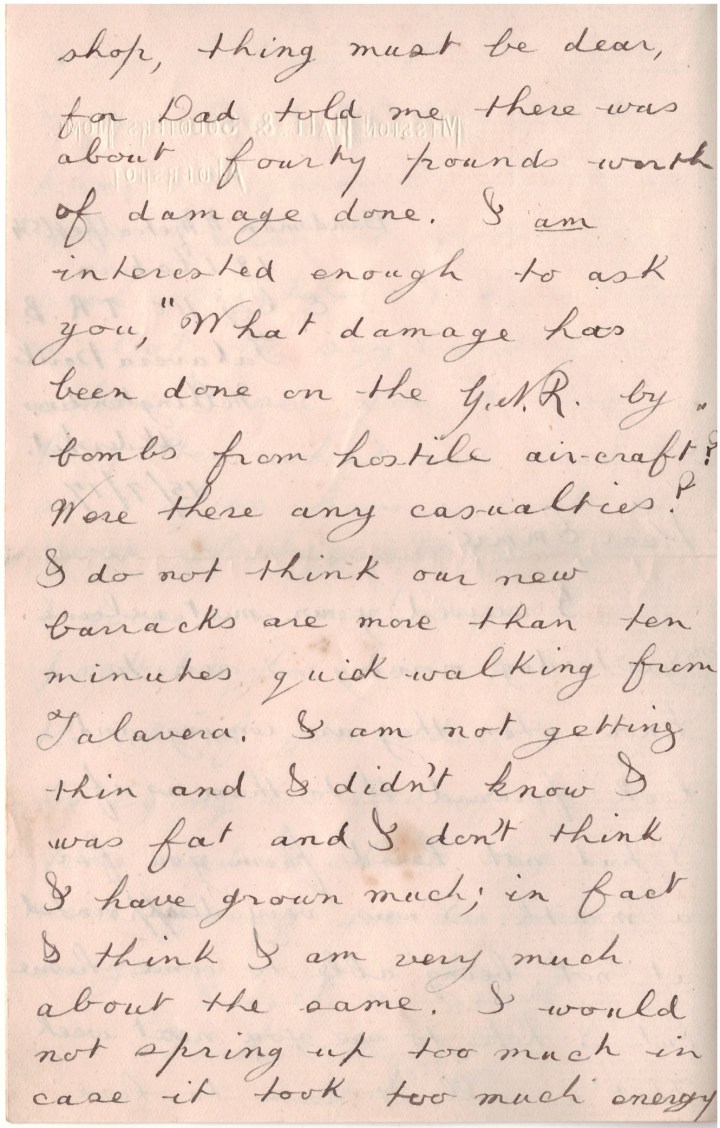 shop, thing must be dear,
for Dad told me there was
about fourty pounds worth
of damage done. I am
interested enough to ask
you, "What damage has
been done on the G.N.R. by
bombs from hostile air-craft"?
Were there any casualties?
I do not think our new
barracks are more than ten
minutes quick walking from
Talavera. I am not getting
thin and I didn't know I
was fat and I don't think
I have grown much; in fact
I think I am very much
about the same. I would
not spring up too much in
case it took too much energy